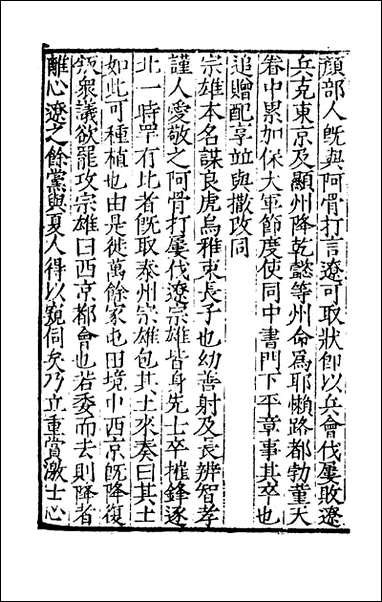 顔部人既與阿骨打言遼可取狀即以兵會伐屢敗遼
兵克東京及顯州降乾懿等州命爲耶懶路都勃堇天
眷中累加保大軍節度使同中書門下平章事其卒也
追贈配享並與撒改同
宗雄本名謀良虎烏雅束長子也幼善射及長辨智孝
謹人愛敬之阿骨打屢伐遼宗雄皆身先士卒摧鋒逐
北一時罕有比者旣取泰州宗雄包其土來奏曰其土
如此可種植也由是徙萬餘家屯田境中西京旣降復
叛衆議欲罷攻宗雄曰西京都會也若委而去則降者
離心遼之餘黨與夏人得以窺伺矣乃立重賞激士心